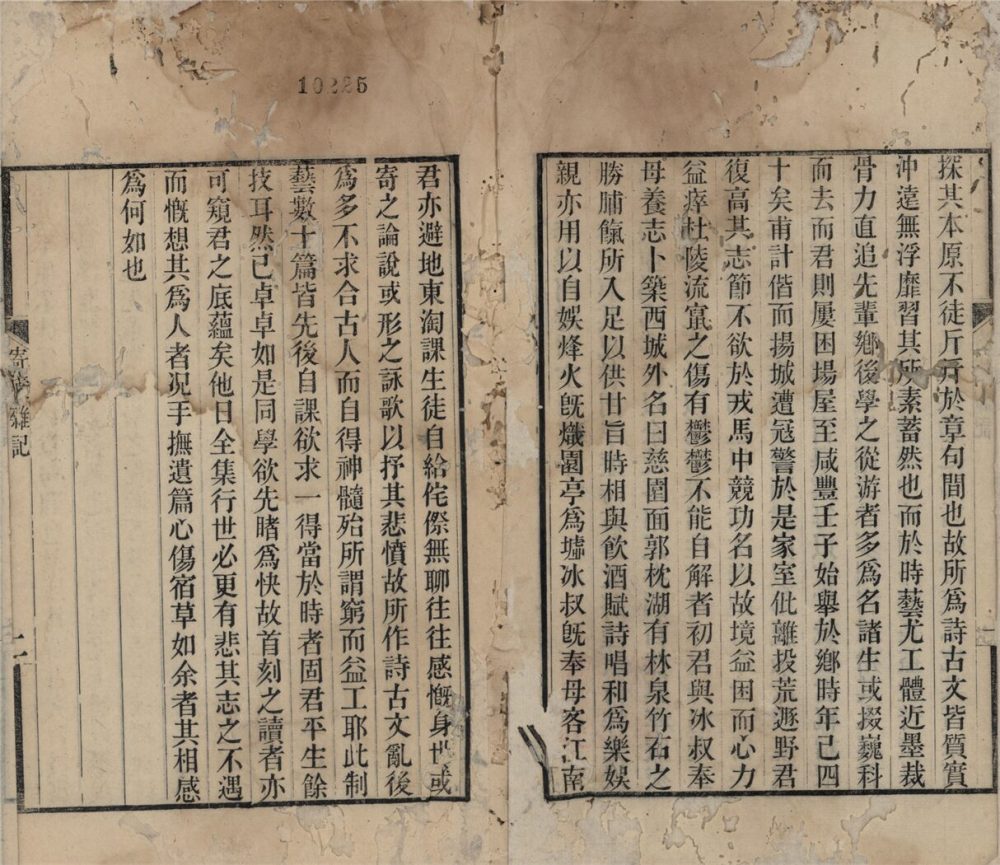 10225
探其本原不徒斤斤於章句間也故所爲詩古文皆質實
沖遠無浮靡習其所素蓄然也而於時藝尤工體近墨裁
骨力直追先輩鄉後學之從游者多爲名諸生或掇巍科
而去而君則屢困場屋至咸豐壬子始舉於鄉時年已四
十矣甫計偕而揚城遭冦警於是家室仳離投荒遯野君
復高其志節不欲於戎馬中競功名以故境益困而心力
益瘁杜陵流寓之傷有鬱鬱不能自解者初君與冰叔奉
母養志卜築西城外名曰慈園面郭枕湖有林泉竹石之
勝脯餼所入足以供甘旨時相與飲酒賦詩唱和爲樂娛
親亦用以自娛烽火旣熾園亭爲墟冰叔旣奉母客江南
君亦避地東淘課生徒自給侘傺無聊往往感慨身世或
寄之論說或形之詠歌以抒其悲憤故所作詩古文亂後
爲多不求合古人而自得神髓殆所謂窮而益工耶此制
藝數十篇皆先後自課欲求一得當於時者固君平生餘
技耳然已卓卓如是同學欲先睹爲快故首刻之讀者亦
可窺君之底蘊矣他日全集行世必更有悲其志之不遇
而慨想其爲人者況手撫遺篇心傷宿草如余者其相感
爲何如也
寄 雜記
二